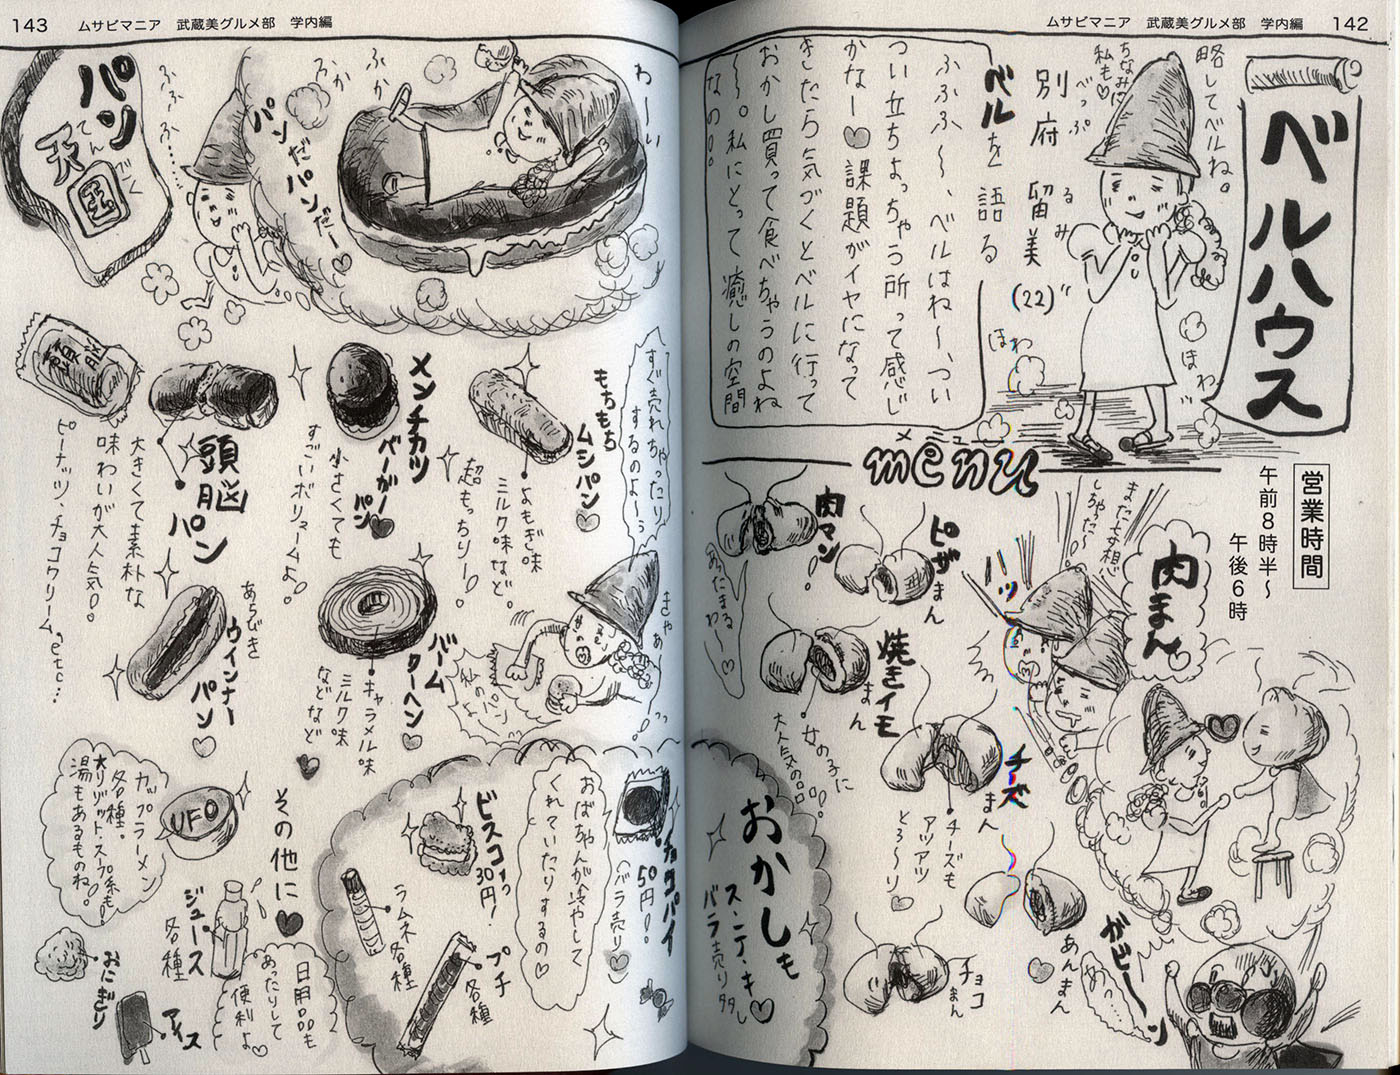 ムサビマニア 武蔵美グルメ部 学内編 142
ベルハウス
略してベルね。
ちなみに
私も♡
別府留美(22)
べっぷ るみ
ほわ
ほわ
ベルを語る
ふふふ〜、ベルはね〜、つい
つい立ちよっちゃう所って感じ
かなー♥課題がイヤになって
きたら気づくとベルに行って
おかし買って食べちゃうのよね
〜。私にとって癒しの空間
なの!!
営業時間
午前8時半〜
午後6時
menu
肉まん
また妄想
しちゃった〜!
ハッ
ピザまん
肉マン
あたたまる
わ〜♡
焼きイモまん
女の子に
大人気の品!!
チーズまん
チーズも
アツアツ
とろ〜り♡
あんまん
チョコまん
ガビーン
おかしも
ス・テ・キ♡
バラ売り多し
ムサビマニア 武蔵美グルメ部 学内編 143
パン天国
てんごく
ふふふふ……
わーい
ふか
ふか
パンだパンだー♡
すぐ売れちゃったり
するのよ〜う
きゃあ
私のパン
もちもち
ムシパン
よもぎ味
ミルク味など。
超もっちりー!
メンチカツ
バーガー
パン
小さくても
すごいボリュームよ!
頭脳パン
頭脳パン
大きくて素朴な
味わいが大人気!
ピーナッツ、チョコクリーム、etc…
バーム
クーヘン
キャラメル味
ミルク味
などなど
あらびき
ウインナー
パン
チョコパイ
50円!!
バラ売り♡
おばちゃんが冷やして
くれていたりするの♡
ビスコ
30円!
プチ
各種
ラムネ
各種
その他に♥
カップラーメン
各種。
リゾット・スープ系も!
湯もあるものね。
UFO
ジュース
各種
日用品も
あったりして
便利よ♡
おにぎり
アイス